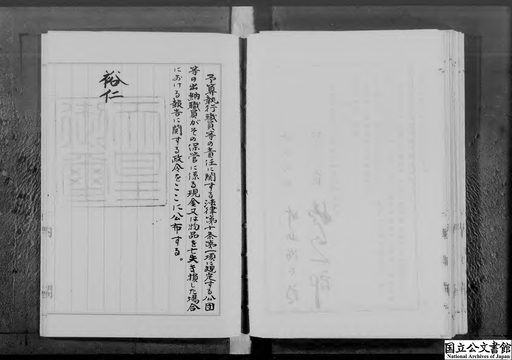 予算執行職員等の責任に関する法律第十条第一項に規定する公団
等の出納職員がその保管に係る現金又は物品を亡失き損した場合
における報告に関する政令をここに公布する。
裕仁
天皇
御璽
国立公文書館
National Archives of Japan